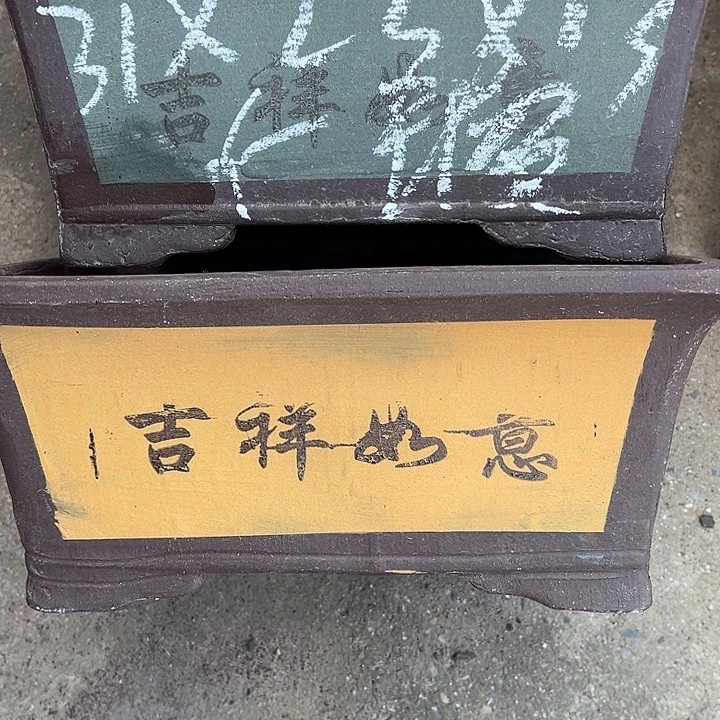 31X25X13
吉祥如意
吉祥如意